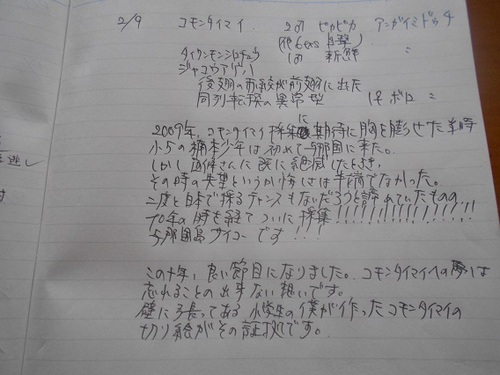 2/9 コモンタイマイ 2♂ ピカピカ アンガイマドッチ
(他6exs 目撃)
タイワンモンシロチョウ 1♂ 新鮮 〃
ジャコウアゲハ
後翅の赤紋が前翅に出た
同列転換の異常型 1♀ボロ 〃
2009年、コモンタイマイ採集に期待に胸を膨ませた当時
小5の橋本少年は初めて与那国に来た。
しかし 直後さんに既に絶滅したときき、
その時の失望というか悔しさは半端でなかった。
二度と日本で採るチャンスもないだろうと諦めていたものの
10年の時を経てついに採集!!!!!!!!!!!!!!!!
与那国島サイコーです!!!
この十年、良い節目になりました。コモンタイマイへの夢は
忘れることの出来ない想いです。
壁に張ってある小学生の僕が作ったコモンタイマイの
切り絵がその証拠です。